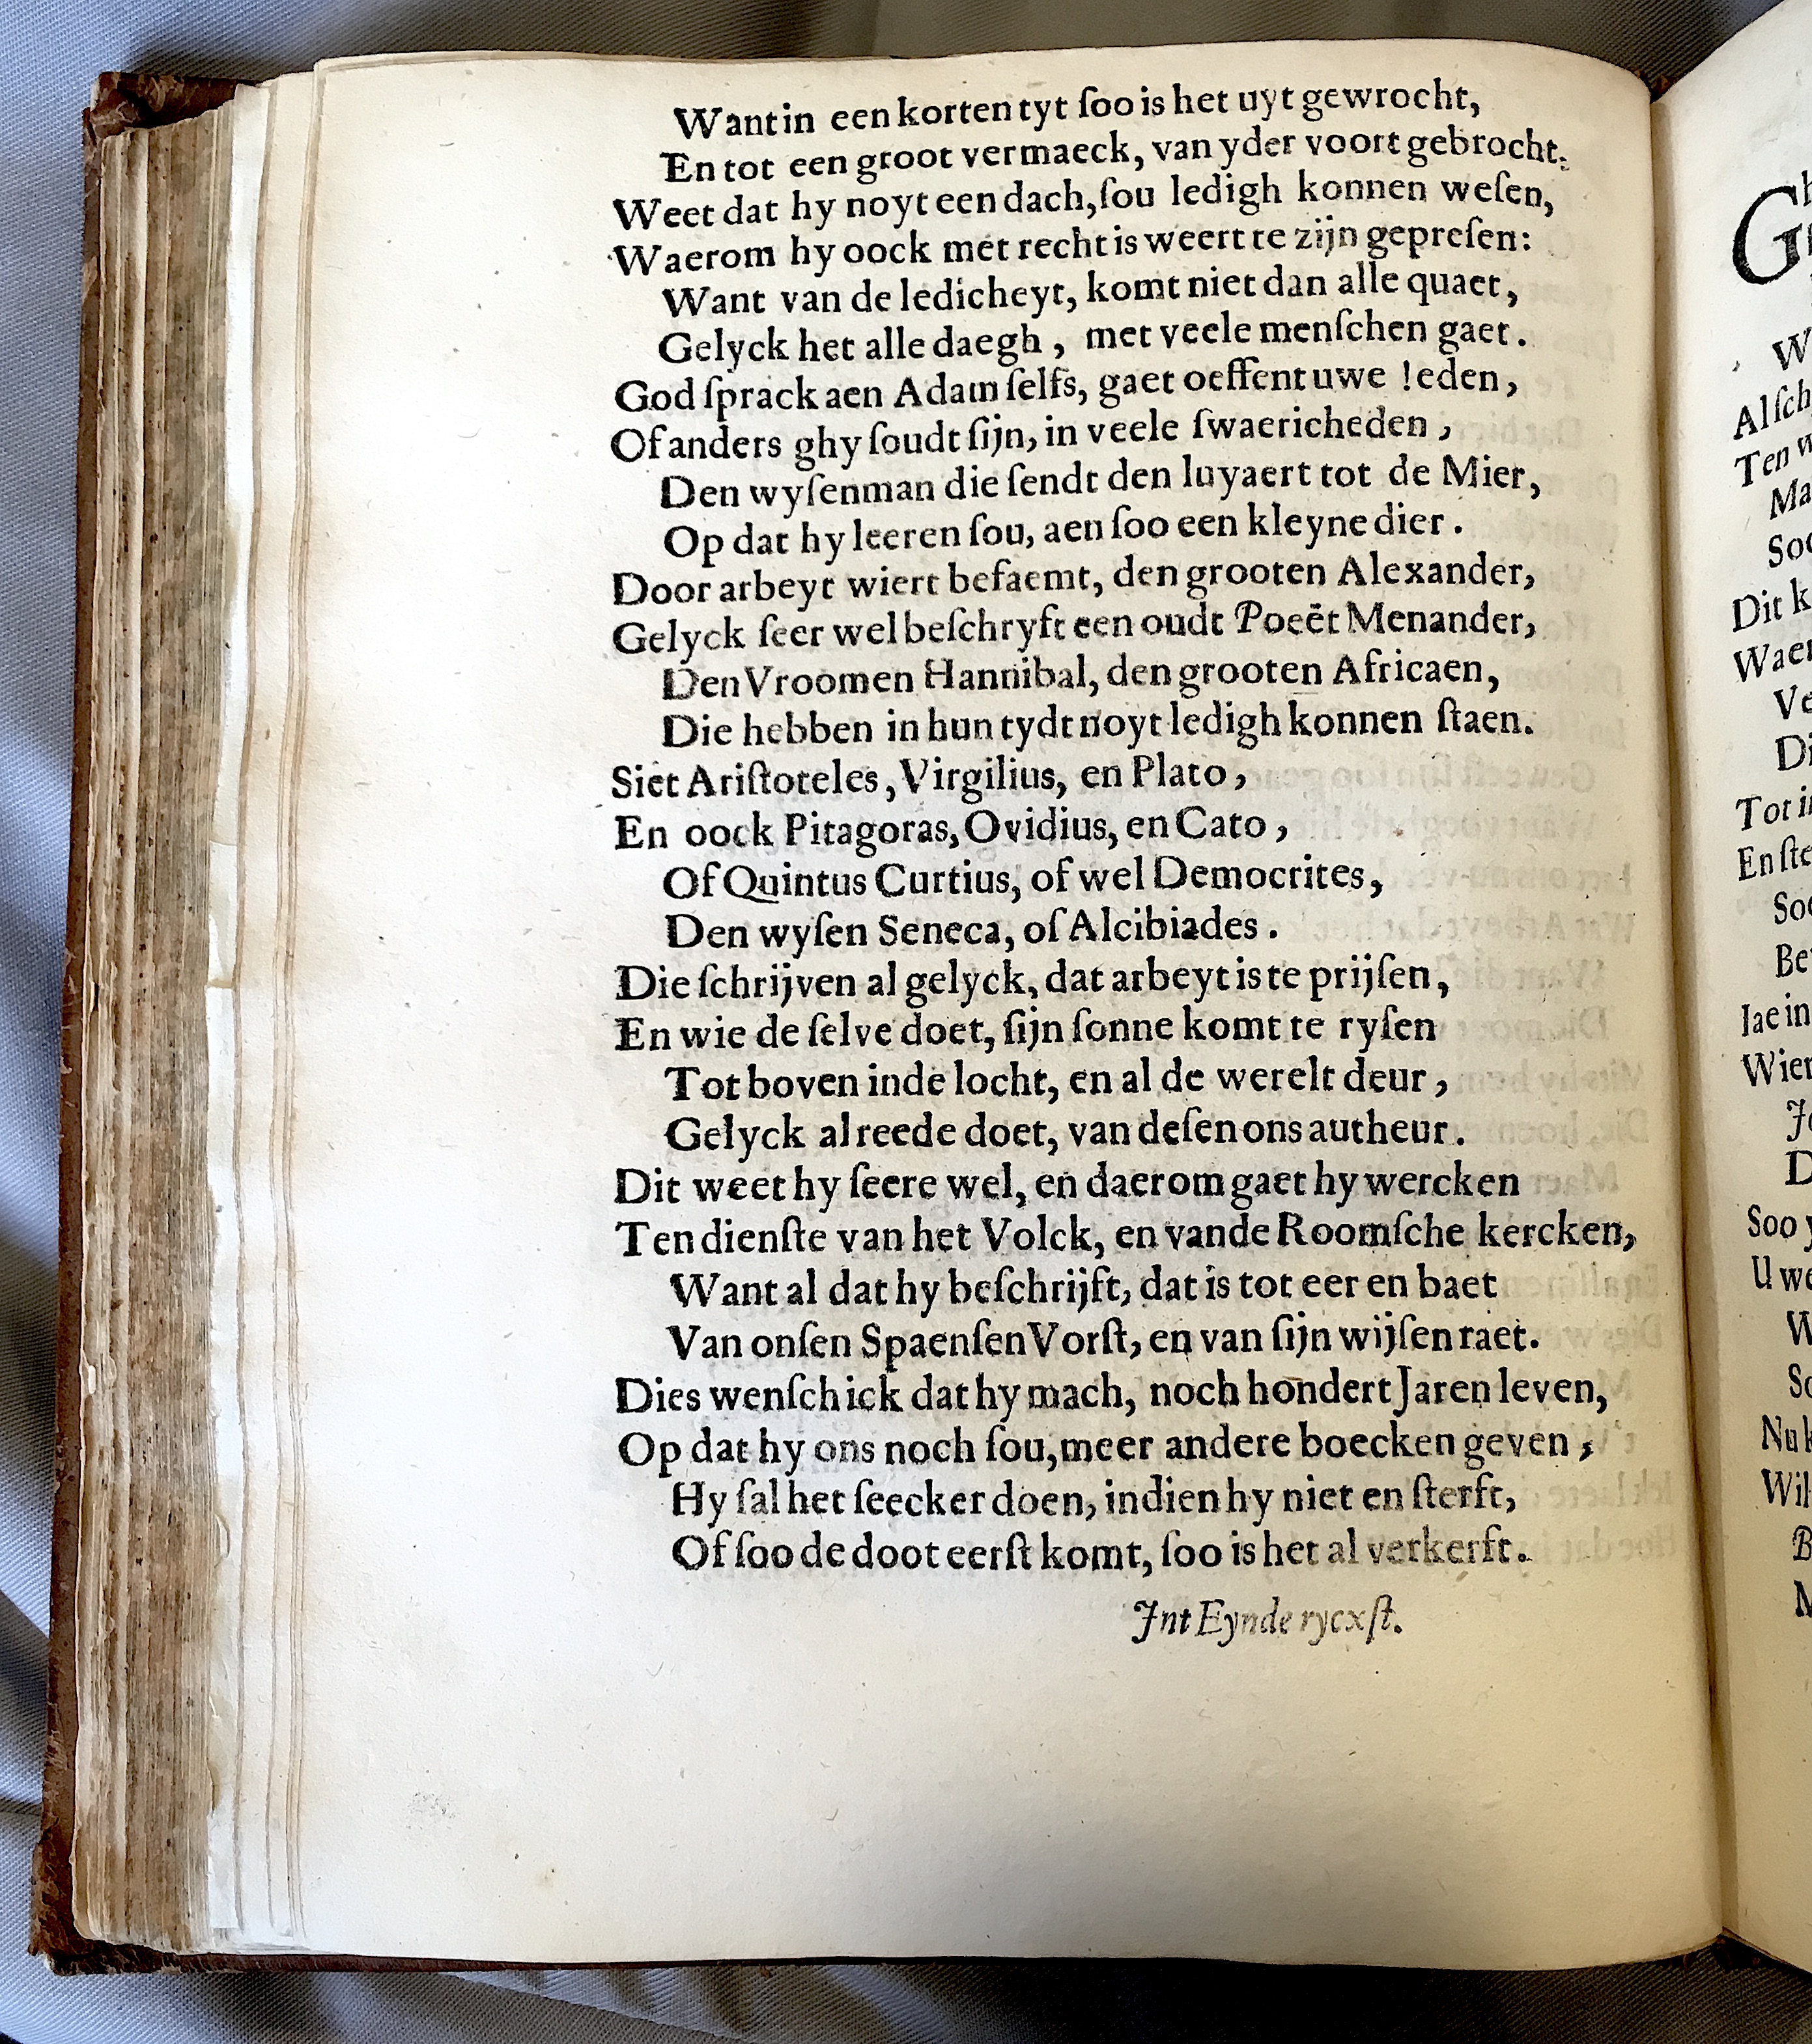 Want in een korten tyt ſoo is het uyt gewrocht,
En tot een groot vermaeck, van yder voort gebrocht.
Weet dat hy noyt een dach, ſou ledigh konnen weſen,
Waerom hy oock met recht is weert te zijn gepreſen:
Want van de ledicheyt, komt niet dan alle quaet,
Gelyck het alle daegh, met veele menſchen gaet.
God ſprack aen Adam ſelfs, gaet oeffent uwe leden,
Of anders ghy ſoudt ſijn, in veele ſwaericheden,
Den wyſenman die ſendt den luyaert tot de Mier,
Op dat hy leeren ſou, aen ſoo een kleyne dier.
Door arbeyt wiert befaemt, den grooten Alexander,
Gelyck ſeer wel beſchryft een oudt Poeët Menander,
Den Vroomen Hannibal, den grooten Africaen,
Die hebben in hun tydt noyt ledigh konnen ſtaen.
Siet Ariſtoteles, Virgilius, en Plato,
En oock Pitagoras, Ovidius, en Cato,
Of Quintus Curtius, of wel Democrites,
Den wyſen Seneca, of Alcibiades.
Die ſchrijven al gelyck, dat arbeyt is te prijſen,
En wie de ſelve doet, ſijn ſonne komt te ryſen
Tot boven inde locht, en al de werelt deur,
Gelyck alreede doet, van deſen ons autheur.
Dit weet hy ſeere wel, en daerom gaet hy wercken
Ten dienſte van het Volck, en vande Roomſche kercken,
Want al dat hy beſchrijft, dat is tot eer en baet
Van onſen Spaenſen Vorſt, en van ſijn wijſen raet.
Dies wenſch ick dat hy mach, noch hondert Jaren leven,
Op dat hy ons noch ſou, meer andere boecken geven,
Hy ſal het ſeecker doen, indien hy niet en ſterft,
Of ſoo de doot eerſt komt, ſoo is het al verkerft.
Jnt Eynde rycxſt.